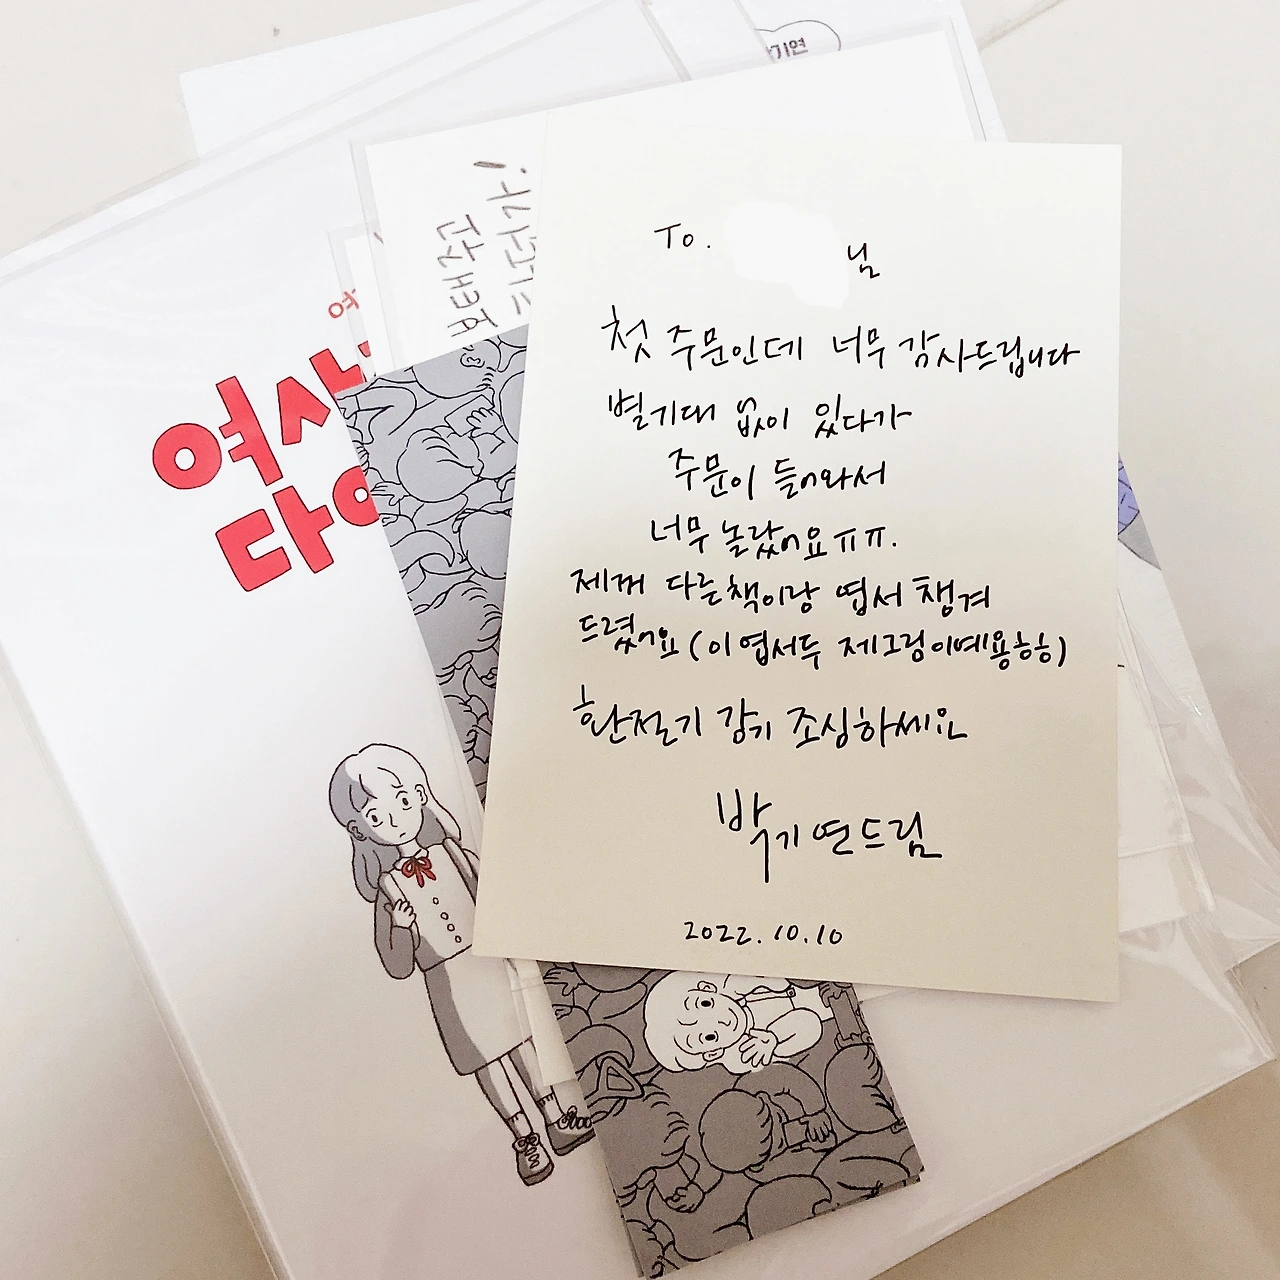 기연
여사
다이
To. 님
첫 주문인데 너무 감사드립니다
별기대 없이 있다가
주문이 들어와서
너무 놀랐어요 ㅠㅠ.
제꺼 다른책이랑 엽서 챙겨
드렸어요 (이 엽서두 제그림이예용ㅎㅎ)
환절기 감기 조심하세요
박기연드림
2022.10.10